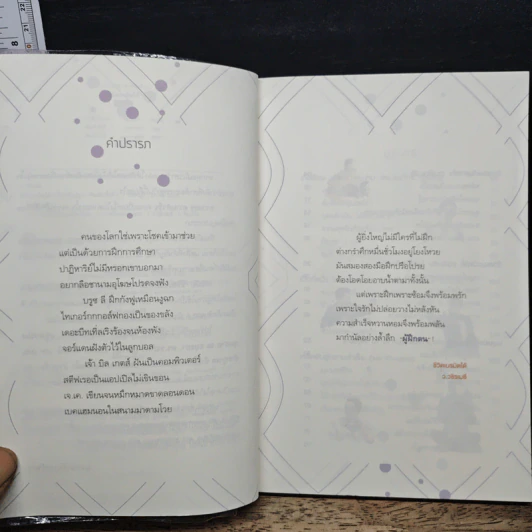 คำปรารภ
คนของโลกใช่เพราะโชคเข้ามาช่วย
แต่เป็นด้วยการฝึกการศึกษา
ปาฏิหาริย์ไม่มีหรอกเขาบอกมา
อยากลือชานามอุโฆษโปรดจงฟัง
บรูซ ลี ฝึกกังฟูเหมือนงูฉก
ไทเกอร์กกกอล์ฟกองเป็นของขลัง
เดอะบีทเทิลเริงร้องจนห้องพัง
จอร์แดนฝังตัวไว้ในลูกบอล
เจ้า บิล เกตส์ ฝันเป็นคอมพิวเตอร์
สตีฟเธอเป็นแอปเปิลไม่เขินขอน
เจ.เค. เขียนจนหมึกหมาดขาดลอนดอน
เบคแฮมนอนในสนามมาตามโวย
ผู้ยิ่งใหญ่ไม่มีใครที่ไม่ฝึก
ต่างกรำศึกหมื่นชั่วโมงอยู่โยงโหวย
มันสมองสองมือฝึกปรือโปรย
ต้องโอดโอยอาบน้ำตามาทั้งนั้น
แต่เพราะฝึกเพราะซ้อมจึงพร้อมพรัก
เพราะใจรักไม่ปล่อยวางไม่หลังหัน
ความสำเร็จหวานหอมจึงพร้อมพลัน
มากำนัลอย่างล้ำลึก "ผู้ฝึกตน" !
ว.วชิรเมธี